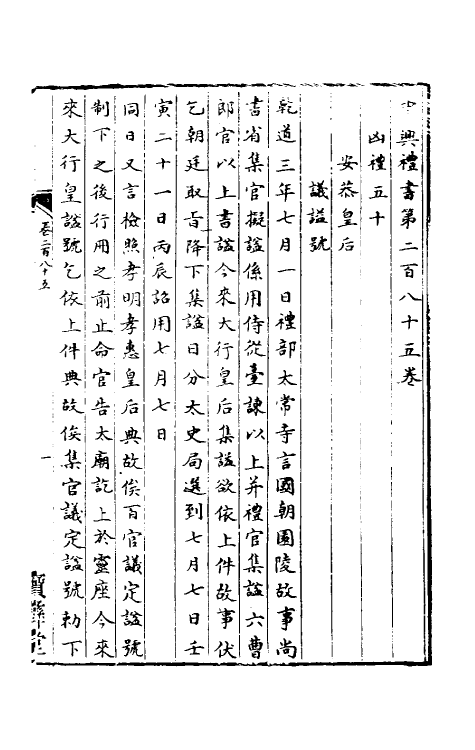 中興禮書第二百八十五卷
凶禮五十
安恭皇后
議諡號
乾道三年七月一日禮部太常寺言國朝園陵故事尚
書省集官擬諡係用侍從臺諫以上并禮官集諡六曹
郎官以上書諡今來大行皇后集諡欲依上件故事伏
乞朝廷取旨降下集諡日分太史局選到七月七日壬
寅二十一日丙辰詔用七月七日
同日又言檢照孝明孝惠皇后典故俟百官議定諡號
制下之後行用之前止命官告太廟訖上於靈座今來
來大行皇諡號乞依上件典故俟集官議定諡號勅下
卷二百八十五
一